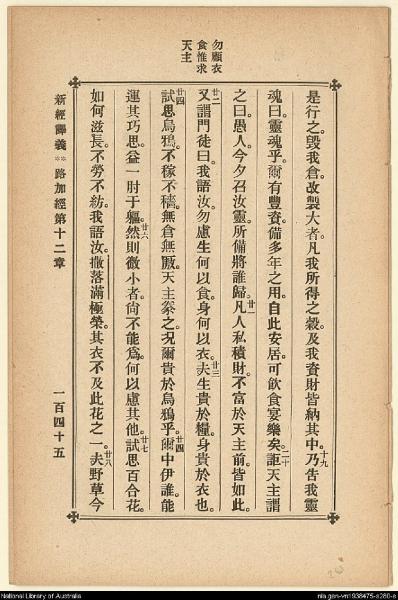 勿顧衣
食惟求
天主
是行之。毀我倉。改製大者。凡我所得之穀。及我資財皆納其中。十九乃告我靈
魂曰。靈魂乎。爾有豐資。備多年之用。自此安居。可飲食宴樂矣。二十詎天主謂
之曰。愚人。今夕召汝靈。所備將誰歸。廿一凡人私積財。不富於天主前。皆如此。
廿二又謂門徒曰。我語汝。勿慮生何以食。身何以衣。廿三夫生貴於糧。身貴於衣也。
廿四試思烏鴉。不稼不穡。無倉無厫。天主豢之。况爾貴於烏鴉乎。廿四爾中伊誰能
運其巧思。益一肘于軀。廿六然則微小者。尙不能爲。何以慮其他。廿七試思百合花。
如何滋長。不勞不紡。我語汝。撒落滿極榮。其衣不及此花之一。廿八夫野草今
新經譯義 ** 路加經第十二章 一百四十五
National Library of Australia
nla.gen-vn1938475-s280-e